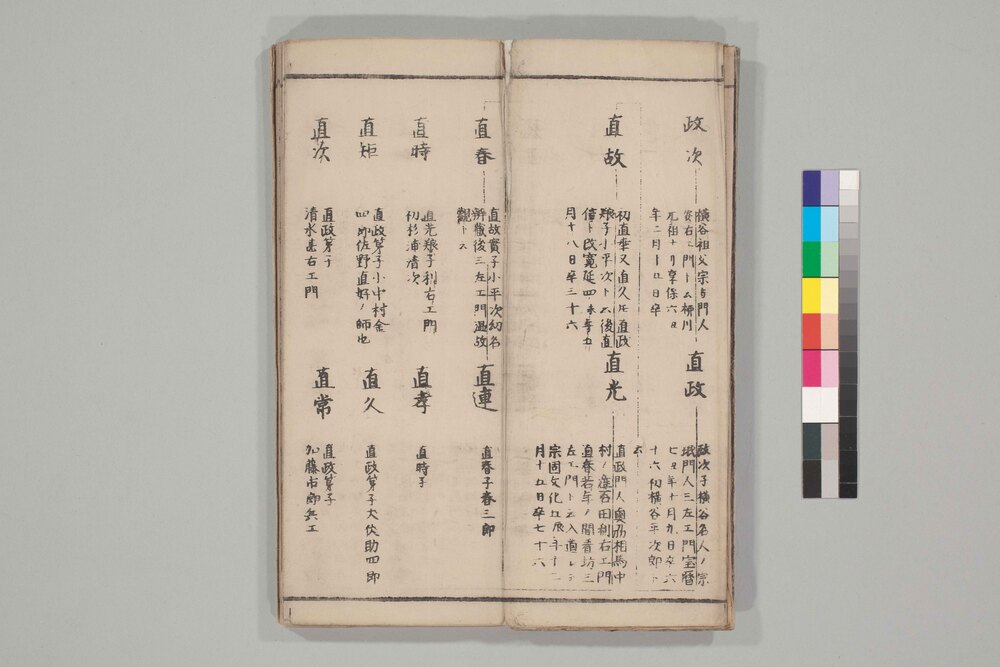 政次
横谷祖父宗与門人
右エ門ト云柳川
元祖ナリ享保六
年二月十五日卒
直政
政次子横谷名人ノ宗
珉門人三左エ門宝暦
七丑年十月九日卒六
十六初横谷平次郎ト
云
直故
初直華又直久凡直政
娘子小平次ト云後直
ト改寛延四未年五
月十八日卒三十六
直光
直政門人奥州相馬中
村ノ産石田利右エ門
直春若年ノ間看坊三
左エ門ト云入道シテ
宗固文化五辰年十二
月十五日卒七十六
直春
直故實子小平次幼名
後三左エ門
観ト云
直連
直春子春三郎
直時
直光娘子利右エ門
初杉浦清次
直孝
直時子
直矩
直政弟子小中村金
四郎佐野直好ノ師也
直久
直政弟子大伏助四郎
直次
直政弟子
清水甚右エ門
直常
直政弟子
加藤市郎兵エ